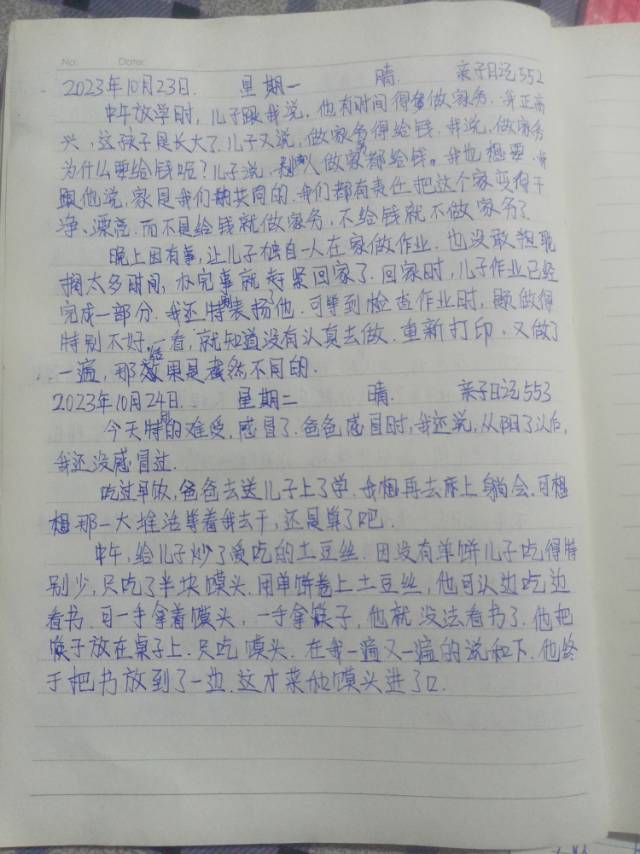 No:    Date:
2023年10月23日. 星期一 晴. 亲子日记552
中午放学时,儿子跟我说,他有时间得多做家务,我正高
兴,这孩子是长大了.儿子又说,做家务得给钱.我说,做家务
为什么要给钱呢?儿子说,别人做家务都给钱。我也想要.我
跟他说,家是我们共同的.我们都有责任把这个家变得干
净、漂亮.而不是给钱就做家务,不给钱就不做家务了.
晚上因有事,让儿子独自一人在家做作业.也没敢耽
搁太多时间,办完事就赶紧回家了.回家时,儿子作业已经
完成一部分.我还特别表扬了他.可等到检查作业时,题做得
特别不好.一看,就知道没有认真去做.重新打印,又做了
一遍,那效果是截然不同的.
2023年10月24日. 星期二 晴. 亲子日记553
今天特别的难受,感冒了.爸爸感冒时,我还说,从阳了以后,
我还没感冒过.
吃过早饭,爸爸去送儿子上了学.我想再去床上躺会.可想
想那一大堆活等着我去干,还是算了吧.
中午,给儿子炒了爱吃的土豆丝.因没有单饼儿子吃得特
别少,只吃了半块馍头.用单饼卷上土豆丝,他可以边吃边
看书.可一手拿着馍头,一手拿筷子,他就没法看书了.他把
筷子放在桌子上.只吃馍头.在我一遍又一遍的说和下.他终
于把书放到了一边.这才菜和馍头进了口.